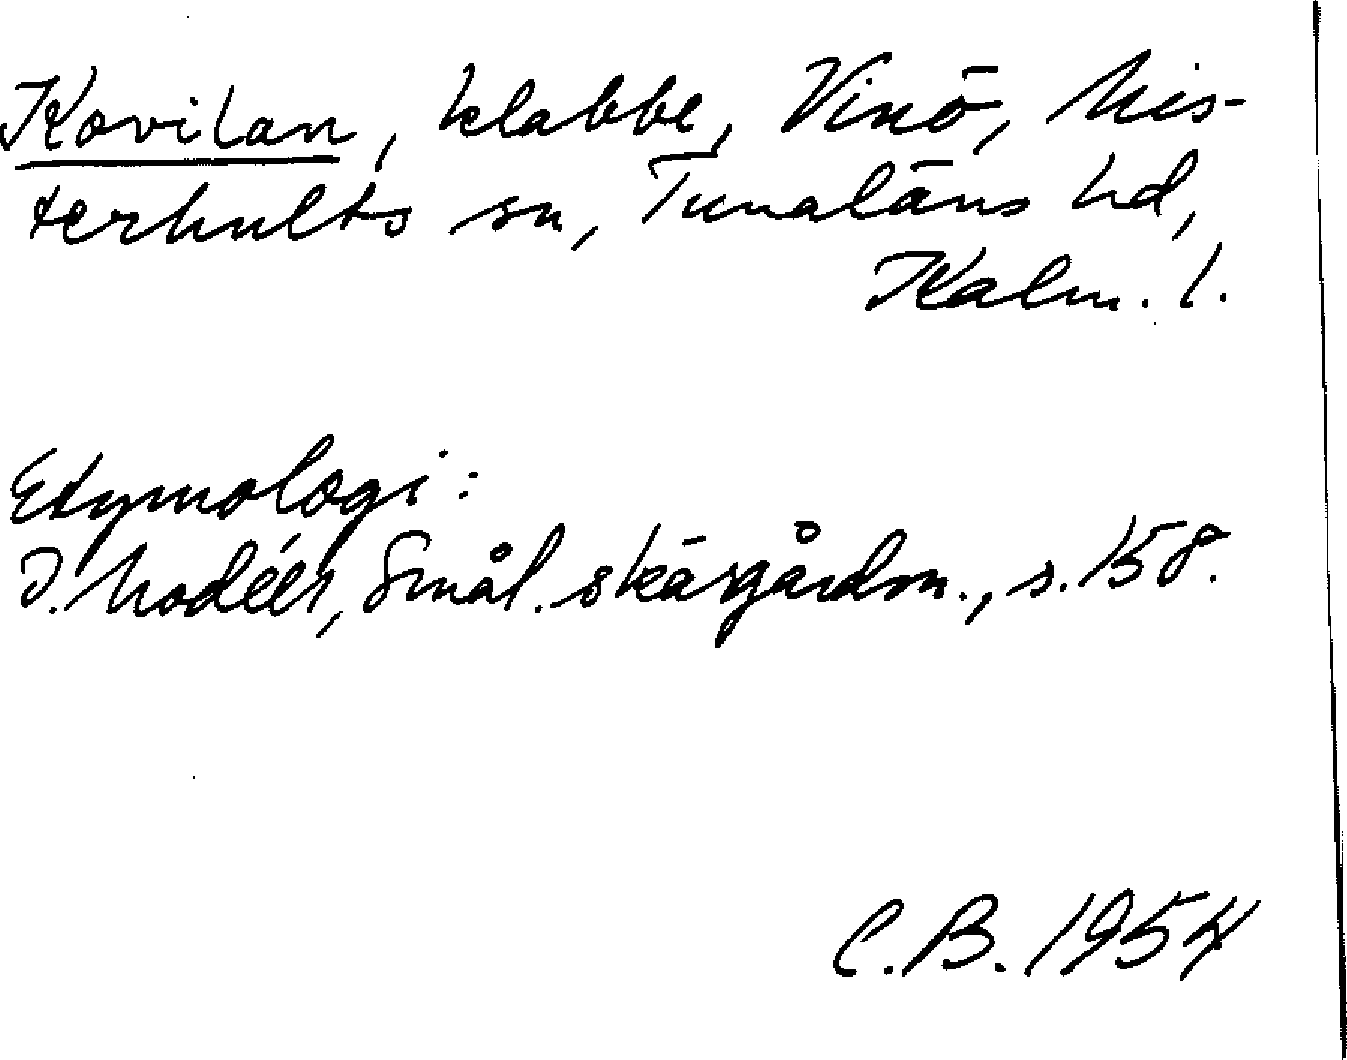 Kovilan, klabbe, Vinö, Mis-
terhults sn, Tunaläns hd,
Kalm. l.
Etymologi:
I. Modéer, Smål. skärgårdsn., s. 158.
C.B. 1954